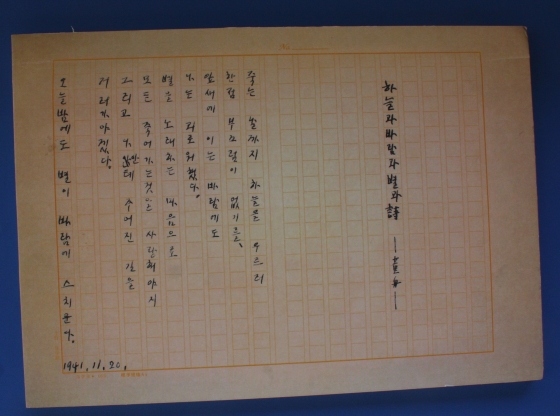 하늘과 바람과 별과 詩
죽는 날까지 하늘을 우르러
한점 부끄럼이 없기를、
잎새에 이는 바람에도
나는 괴로워했다。
별을 노래하는 마음으로
모든 죽어가는것을 사랑해야지
그리고 나안테 주어진 길을
거러가야겠다。
오늘밤에도 별이 바람에 스치운다。
1941. 11. 20.